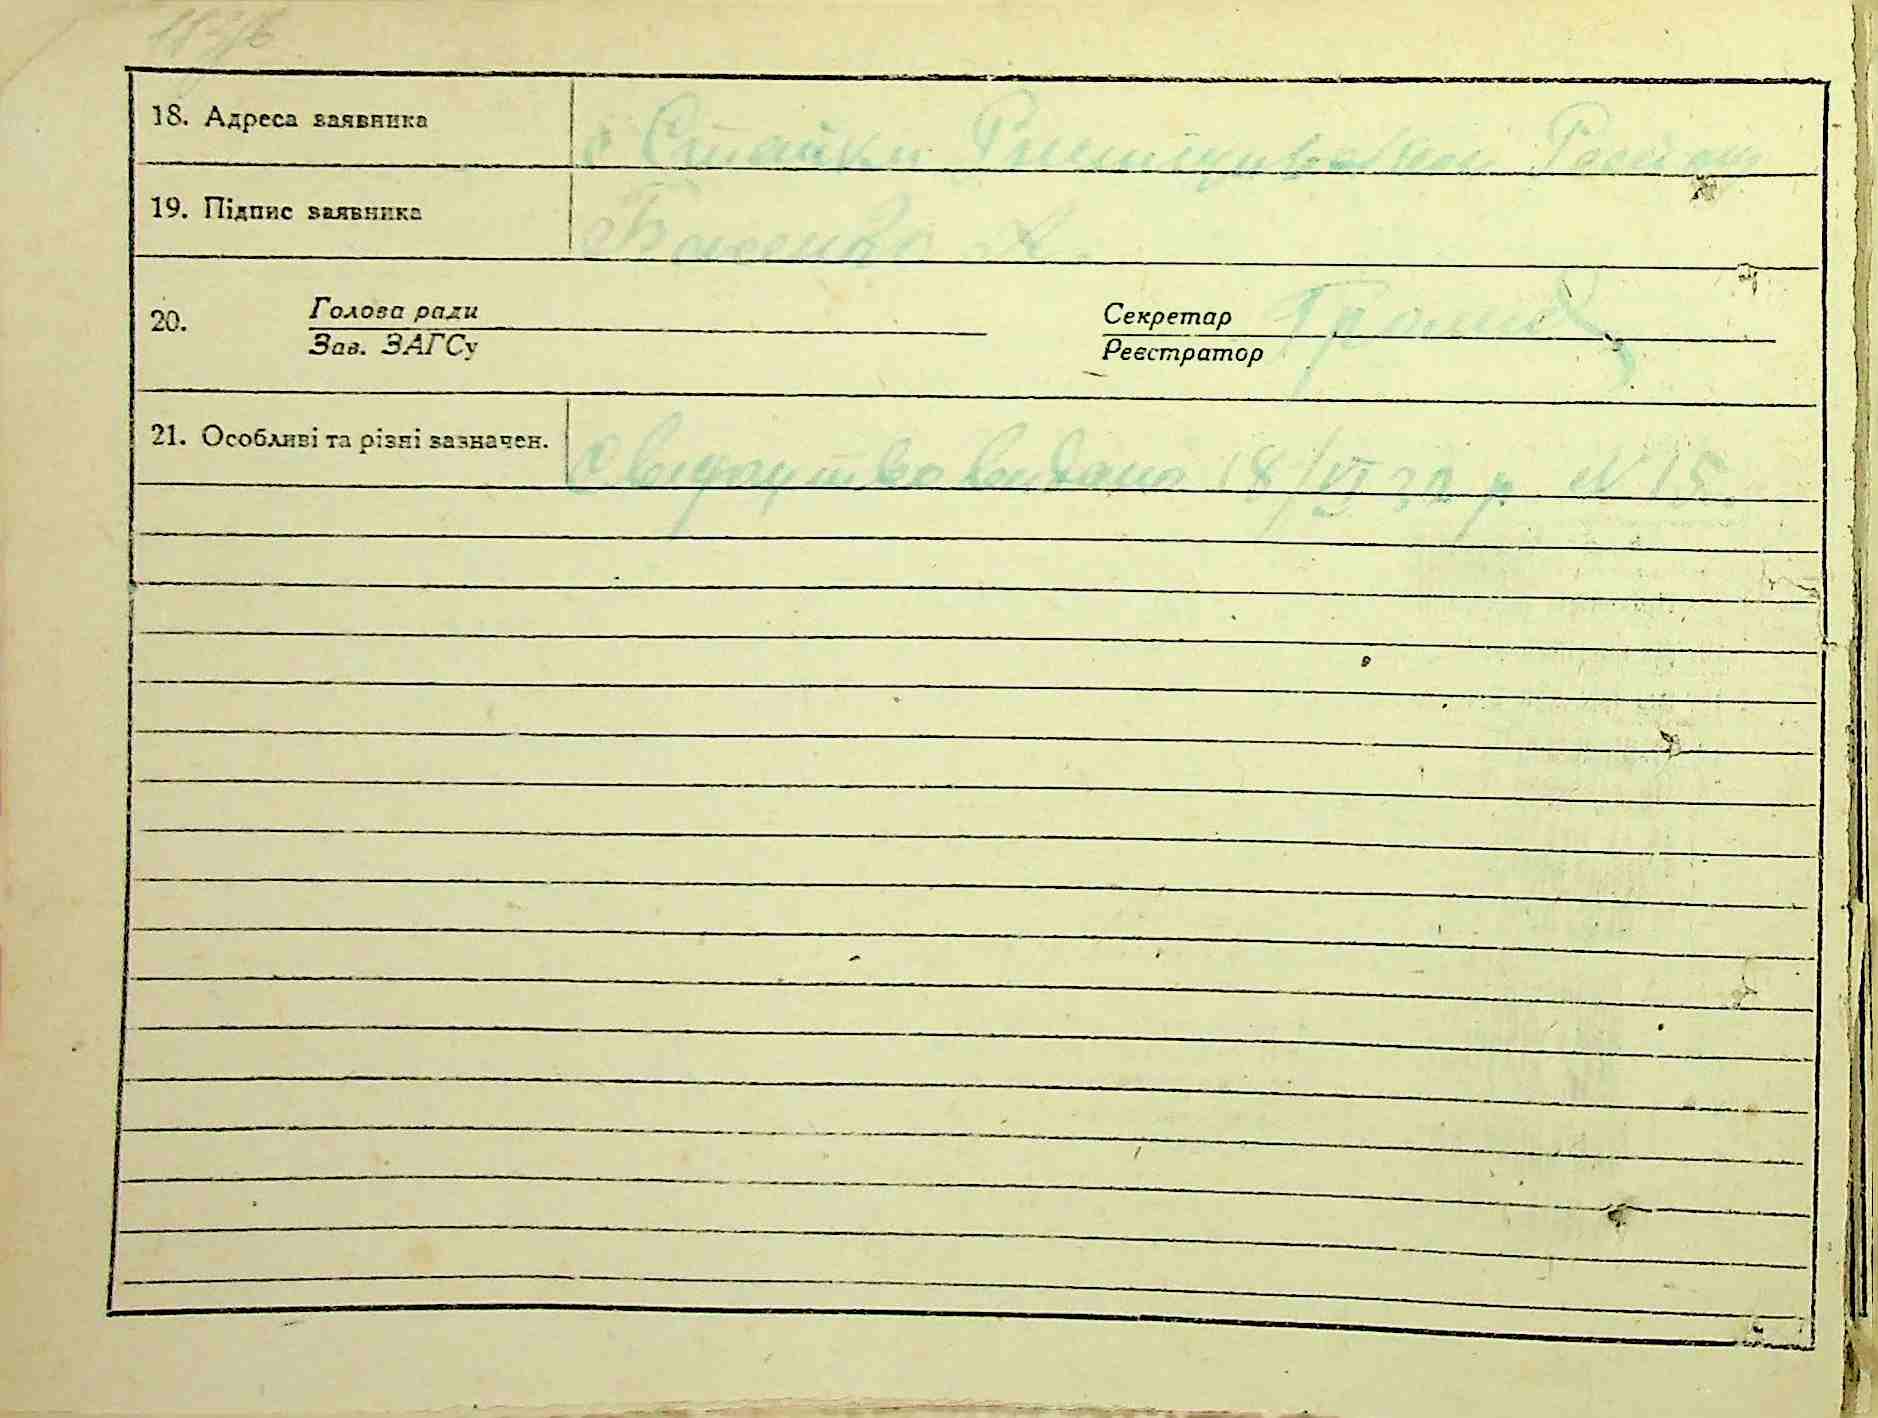 18. Адреса заявника с Стайки Ржищивськ Району
19. Підпис заявника Баженко А.
20. Голова ради Секретар
Зав. ЗАГСу Реєстратор
21. Особливі та різні зазначен. Свидоцтво видано 18/VI 32 р. N 15.